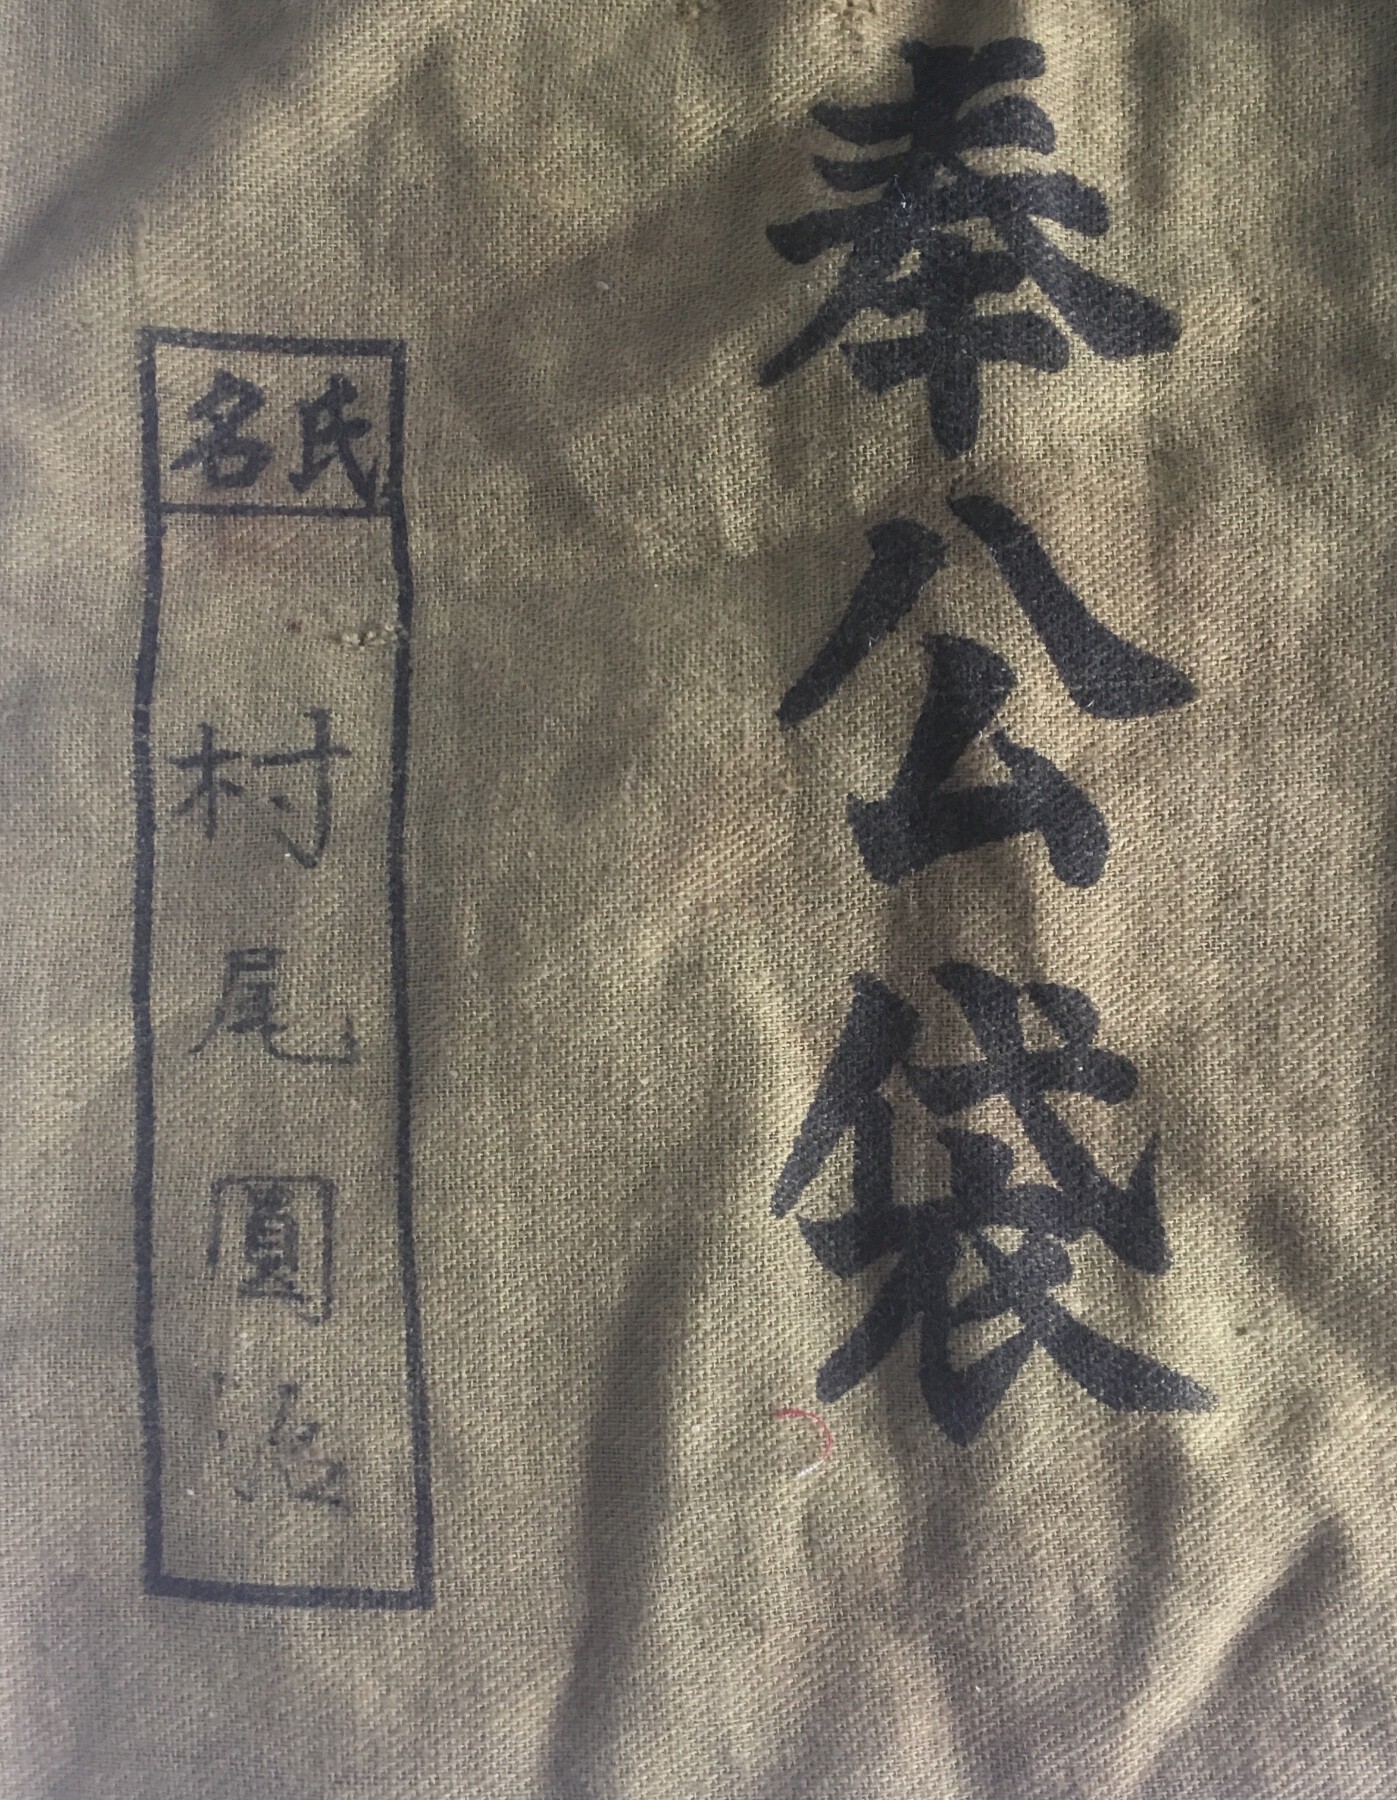 奉公袋
氏名
村尾圓治